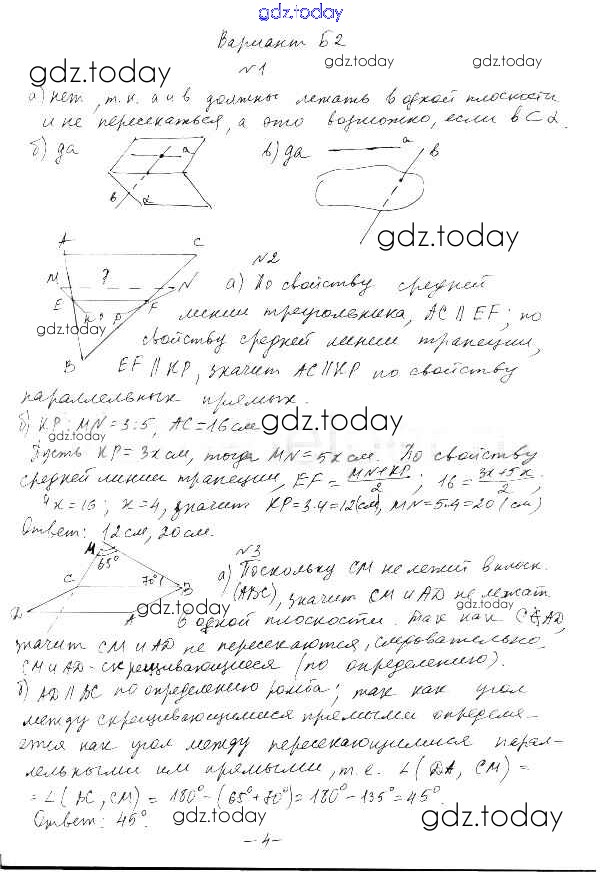 gdz.today
Вариант Б2
gdz.today gdz.today gdz.today
№1
а) нет, т.к. а и в должны лежать в одной плоскости
и не пересекаться, а это возможно, если в⊂α.
б) да в) да
а
в
α
а
в
gdz.today
A C
M ? N
E F
K P
B
gdz.today
№2
а) По свойству средней
линии треугольника, AC ∥ EF; по
свойству средней линии трапеции,
EF ∥ KP, значит AC ∥ KP по свойству
параллельных прямых.
б) KP : MN = 3:5, AC = 16 см
gdz.today
Пусть KP = 3x см, тогда MN = 5x см. По свойству
средней линии трапеции, EF = (MN+KP)/2 ; 16 = (3x+5x)/2 ;
4x = 16; x = 4, значит KP = 3·4 = 12 (см), MN = 5·4 = 20 (см)
Ответ: 12 см, 20 см.
M
65°
C 70° B
D A
gdz.today
№3
а) Поскольку CM не лежит в плоск.
(ABC), значит CM и AD не лежат
gdz.today
в одной плоскости. Так как C∉AD,
значит CM и AD не пересекаются, следовательно,
CM и AD - скрещивающиеся (по определению).
б) AD ∥ BC по определению ромба; так как угол
между скрещивающимися прямыми определя-
ется как угол между пересекающимися парал-
лельными им прямыми, т.е. ∠(DA, CM) =
= ∠(BC, CM) = 180° - (65° + 70°) = 180° - 135° = 45°
Ответ: 45°.
gdz.today gdz.today
- 4 -